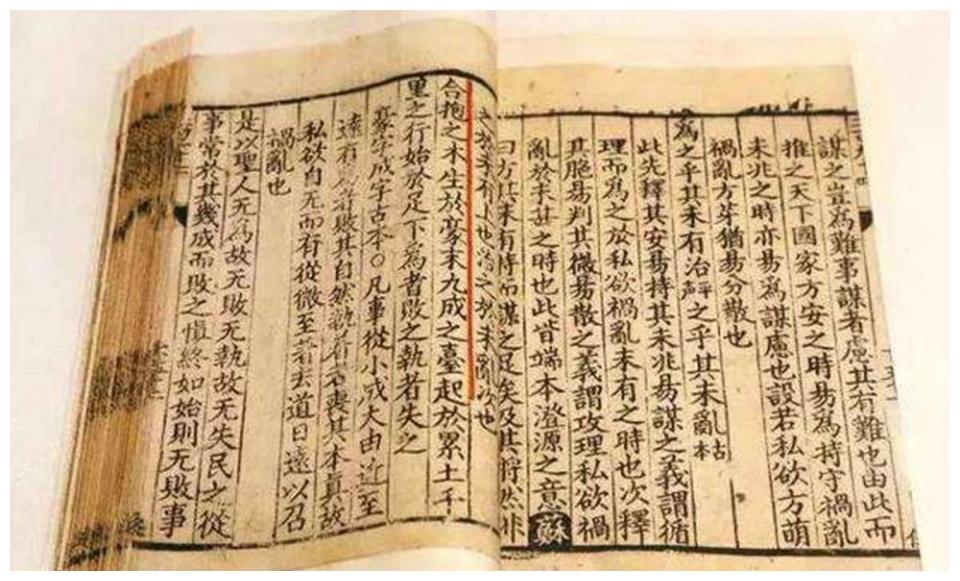 謀之豈為難事謀者慮其有難也由此而
推之天下國家方安之時易為持守禍亂
未兆之時亦易為謀慮也設若私欲方萌
禍亂方芽猶易分散也
為之乎其未有治之乎其未亂
此先釋其安易持其未兆易謀之義謂循
理而為之於私欲禍亂未有之時也次釋
其脆易判其微易散之義謂攻理私欲禍
亂於未甚之時也此皆端本澄源之意蘇
曰方其未有持而謀之足矣及其將然非
之於未有也治之於未亂也
合抱之木生於毫末九成之臺起於累土千
里之行始於足下為者敗之執者失之
毫字成字古本〇凡事從小成大由近至
遠有為者敗其自然執者喪其本真故
私欲自无而有從微至著去道日遠以召
禍亂也
是以聖人无為故无敗无執故无失民之從
事常於其幾成而敗之慎終如始則无敗事